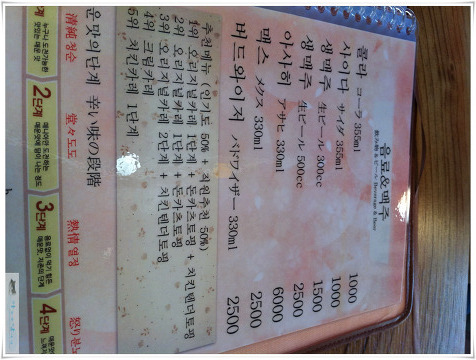 음료&맥주
飲み物&ビール Beverage & Beer
콜라 コーラ 355ml 1000
사이다 サイダ 355ml 1000
생맥주 生ビール 300cc 1500
생맥주 生ビール 500cc 2500
아사히 アサヒ 330ml 6000
맥스 メクス 330ml 2500
버드와이저 バドワイザー 330ml 2500
추천메뉴 (인기도 50% + 직원추천 50%)
1위 오리지널카레 1단계 + 돈카츠토핑 + 치킨텐더토핑
2위 오리지널카레 1단계 + 돈카츠토핑
3위 오리지널카레 2단계 + 치킨텐더토핑
4위 크림카레
5위 치킨카레 1단계
운맛의단계 辛い味の段階
清純 청순
堂々 도도
熱情 열정
怒り 분노
누구나 도전가능한
맛있는 매운 맛
2단계
매니아만 도전하는
3단계
4단계